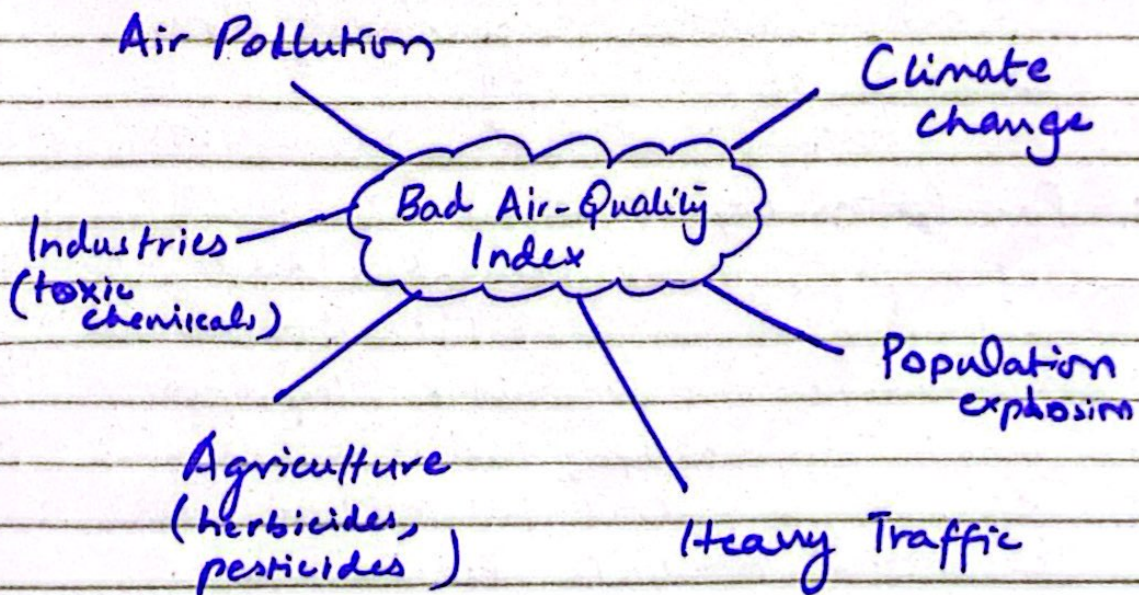 Air Pollution
Climate
change
Bad Air-Quality
Index
Industries
(toxic
chemicals)
Population
explosion
Agriculture
(herbicides,
pesticides)
Heavy Traffic